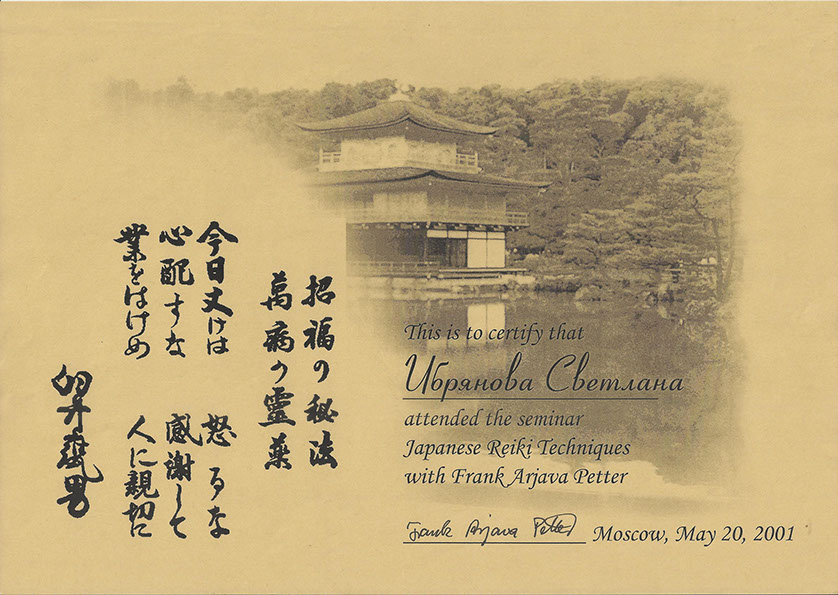 招福の秘法
萬病の靈薬
今日丈けは 怒るな
心配すな 感謝して
業をはけめ 人に親切に
臼井甕男
This is to certify that
Ибрянова Светлана
attended the seminar
Japanese Reiki Techniques
with Frank Arjava Petter
Frank Arjava Petter Moscow, May 20, 2001